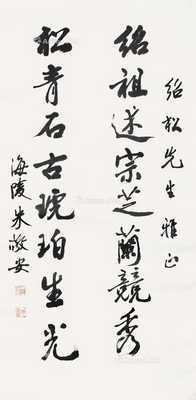 绍松先生雅正
绍祖述宗芝蘭競秀
松青石古琥珀生光
海陵朱敬安